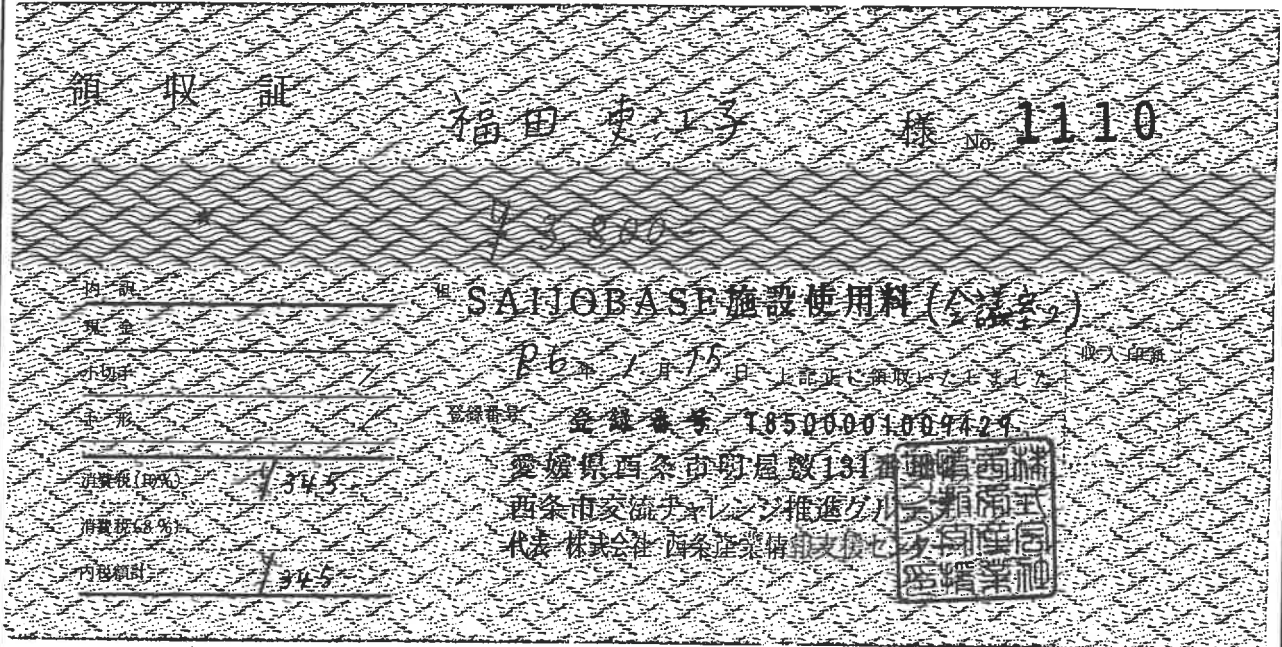 領 収 証
福田 吏江子 様 No. 1110
★ ¥3,800-
内 訳
現 金
小切手
手 形
消費税(10%) ¥345-
消費税(8%)
内税額計 ¥345-
但 SAIJOBASE施設使用料(会議室2)
R6年 1月 15日 上記正に領収いたしました
収入印紙
登録番号 登録番号 T8500001009429
愛媛県西条市明屋敷131番地2
西条市交流チャレンジ推進グループ
代表 株式会社 西条産業情報支援センター